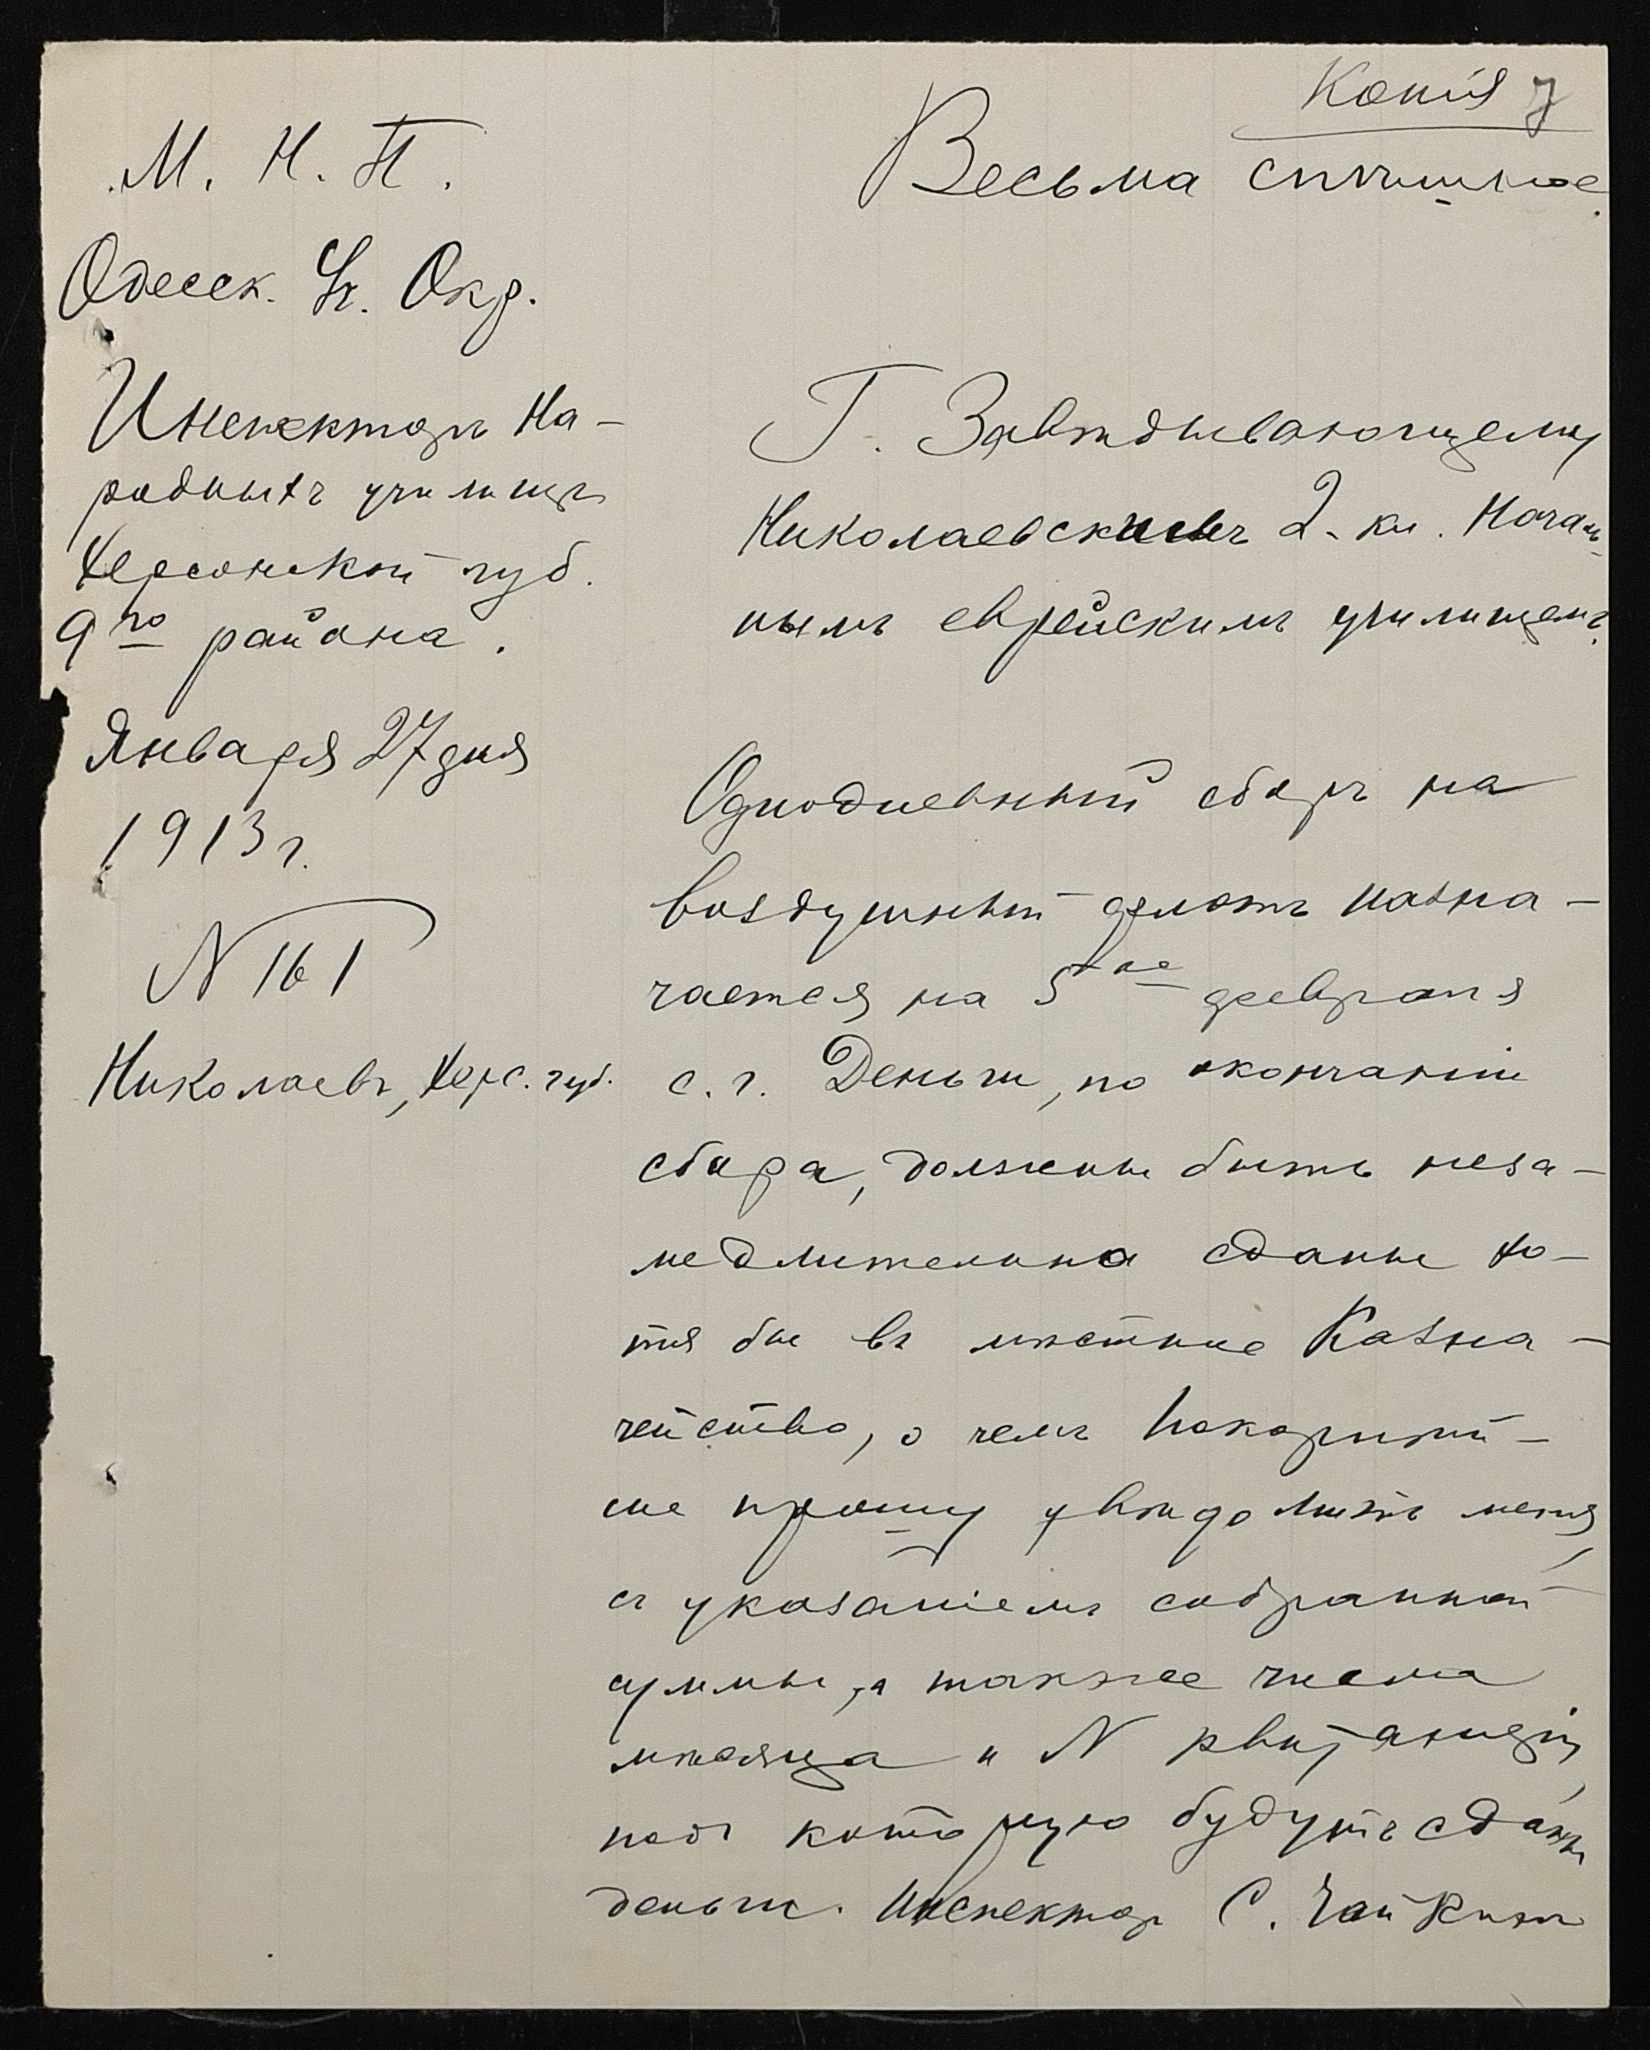 Копія 7
Весьма спѣшное.
М. Н. П.
Одесск. Уч. Окр.
Инспекторъ На-
родныхъ училищъ
Херсонской губ.
9го района.
Января 27 дня
1913 г.
N 161
Николаевъ, Херс. губ.
Г. Завѣдывающему
Николаевскимъ 2-кл. Началь-
нымъ еврейскимъ училищемъ.
Однодневный сборъ на
воздушный флотъ назна-
чается на 5ое февраля
с. г. Деньги, по окончаніи
сбора, должны быть неза-
медлительно сданы хо-
тя бы въ мѣстное Казна-
чейство, о чемъ покорнѣй-
ше прошу увѣдомить меня,
съ указаніемъ собранной
суммы, а также числа
мѣсяца и N квитанціи,
подъ которую будутъ сданы
деньги. Инспекторъ С.